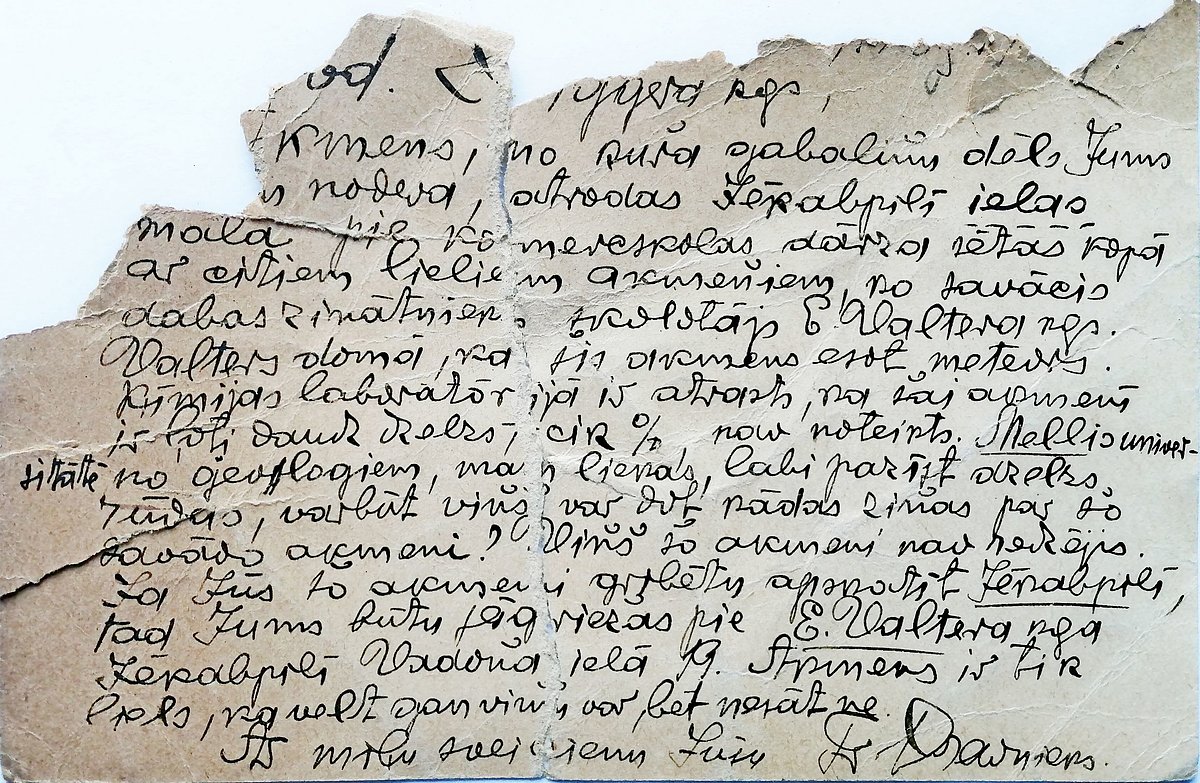 god. Z
kgs,
kmens, no kuŗa gabaliņu dēls Jums
nodeva, atrodas Jēkabpilī ielas
malā pie komercskolas dārza sētās kopā
ar citiem lieliem akmeņiem, ko savācis
dabaszinātnieks skolotājs E. Valtera kgs.
Valters domā, ka šis akmens esot meteors.
Ķīmijas laboratorijā ir atrasts, ka šai akmenī
ir ļoti daudz dzelzs, cik % nav noteikts. Mellis univer-
sitātē no ģeologiem, man liekas, labi pazīst dzelzs
rūdas, varbūt viņš var dot kādas ziņas par šo
savādo akmeni? Viņš šo akmeni nav redzējis.
Ja Jūs šo akmeni gribētu apskatīt Jēkabpilī,
tad Jums būtu jāgriežas pie E. Valtera kga
Jēkabpilī Vadoņa ielā 19. Akmens ir tik
liels, ka velt gan viņu var, bet nesāt ne.
Ar mīļu sveicienu Jūsu